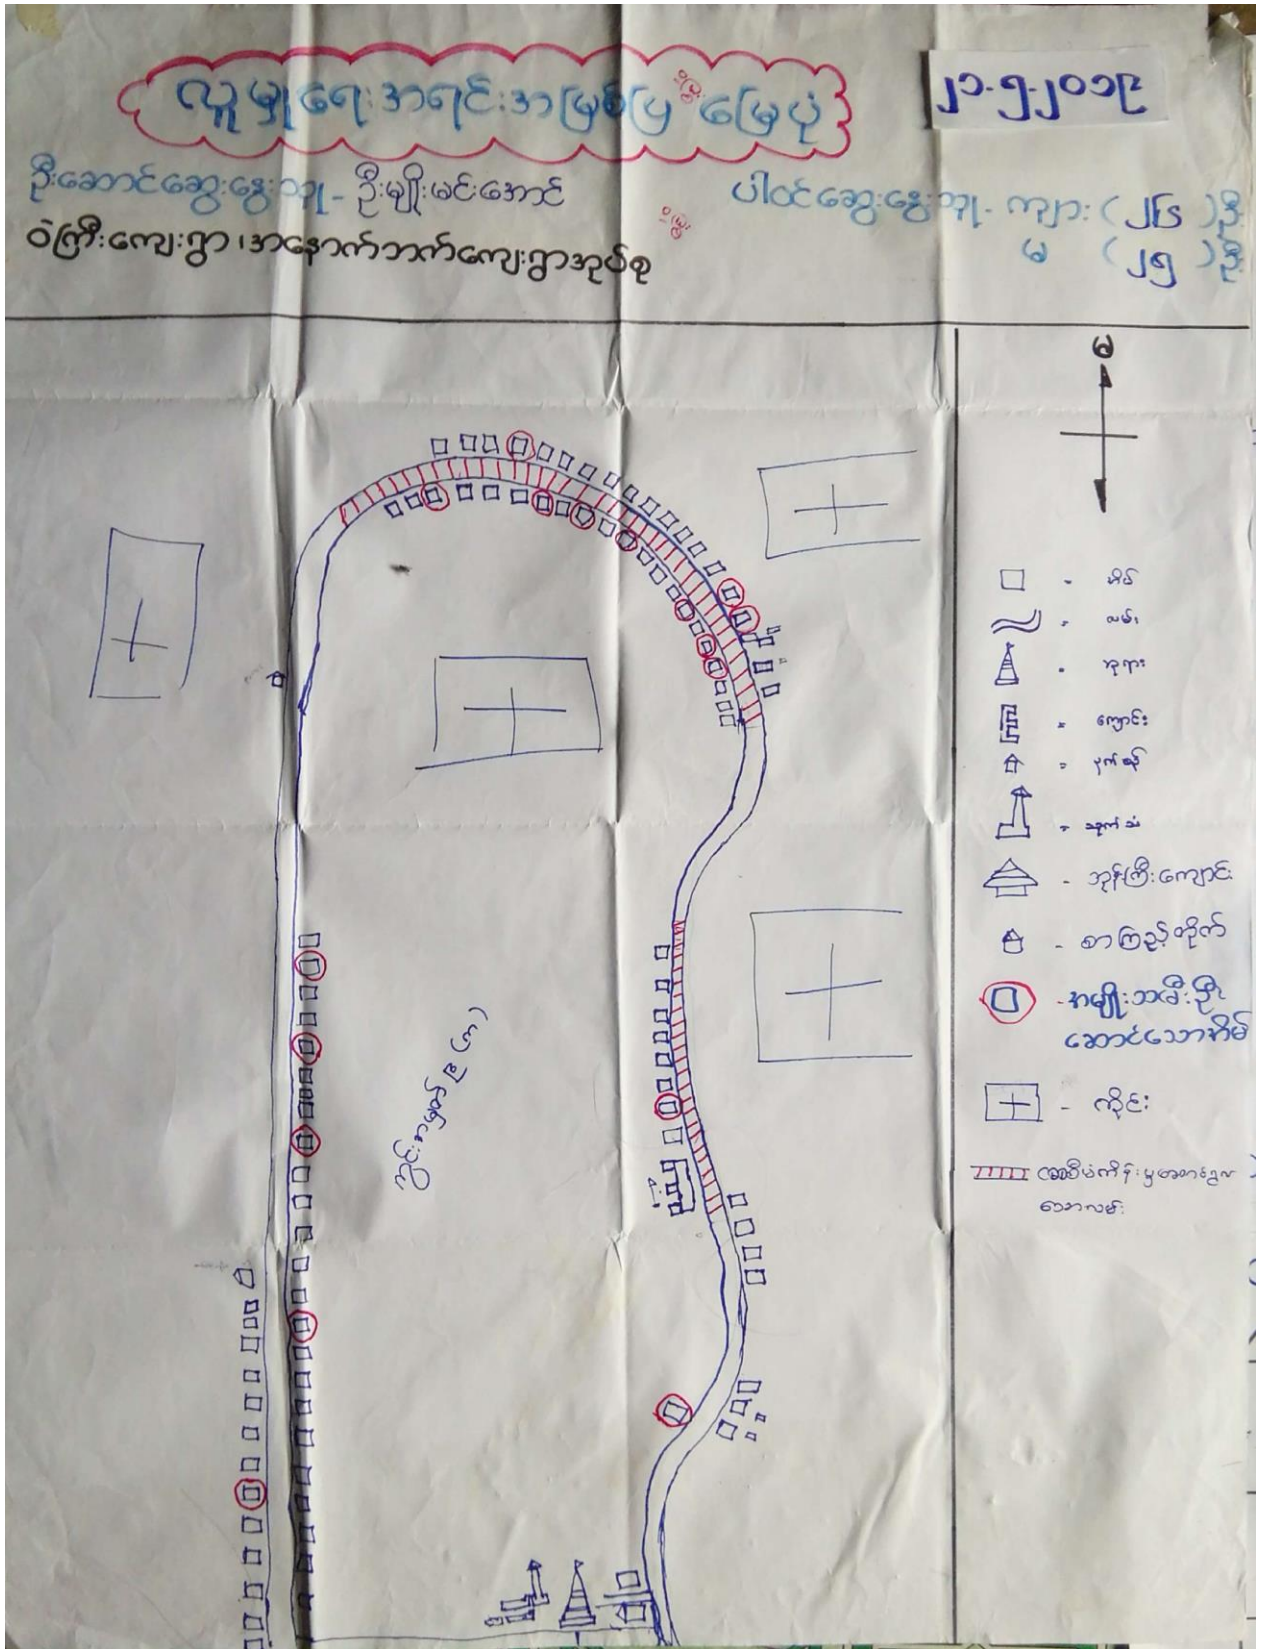 လူမှုရေးအရင်းအမြစ်ပြမြေပုံ
၂၁.၅.၂၀၁၉
ဦးဆောင်ဆွေးနွေးသူ - ဦးမျိုးမင်းအောင်
ပါဝင်ဆွေးနွေးသူ - ကျား (၂၆) ဦး
မ (၂၅) ဦး
ဝဲကြီးကျေးရွာ၊ အနောက်ဘက်ကျေးရွာအုပ်စု
မ
- အိမ်
= လမ်း
= ဘုရား
= ကျောင်း
- ဘုန်းကြီးကျောင်း
- စာကြည့်တိုက်
- အမျိုးသမီးဦး
ဆောင်သောအိမ်
- ကိုင်း